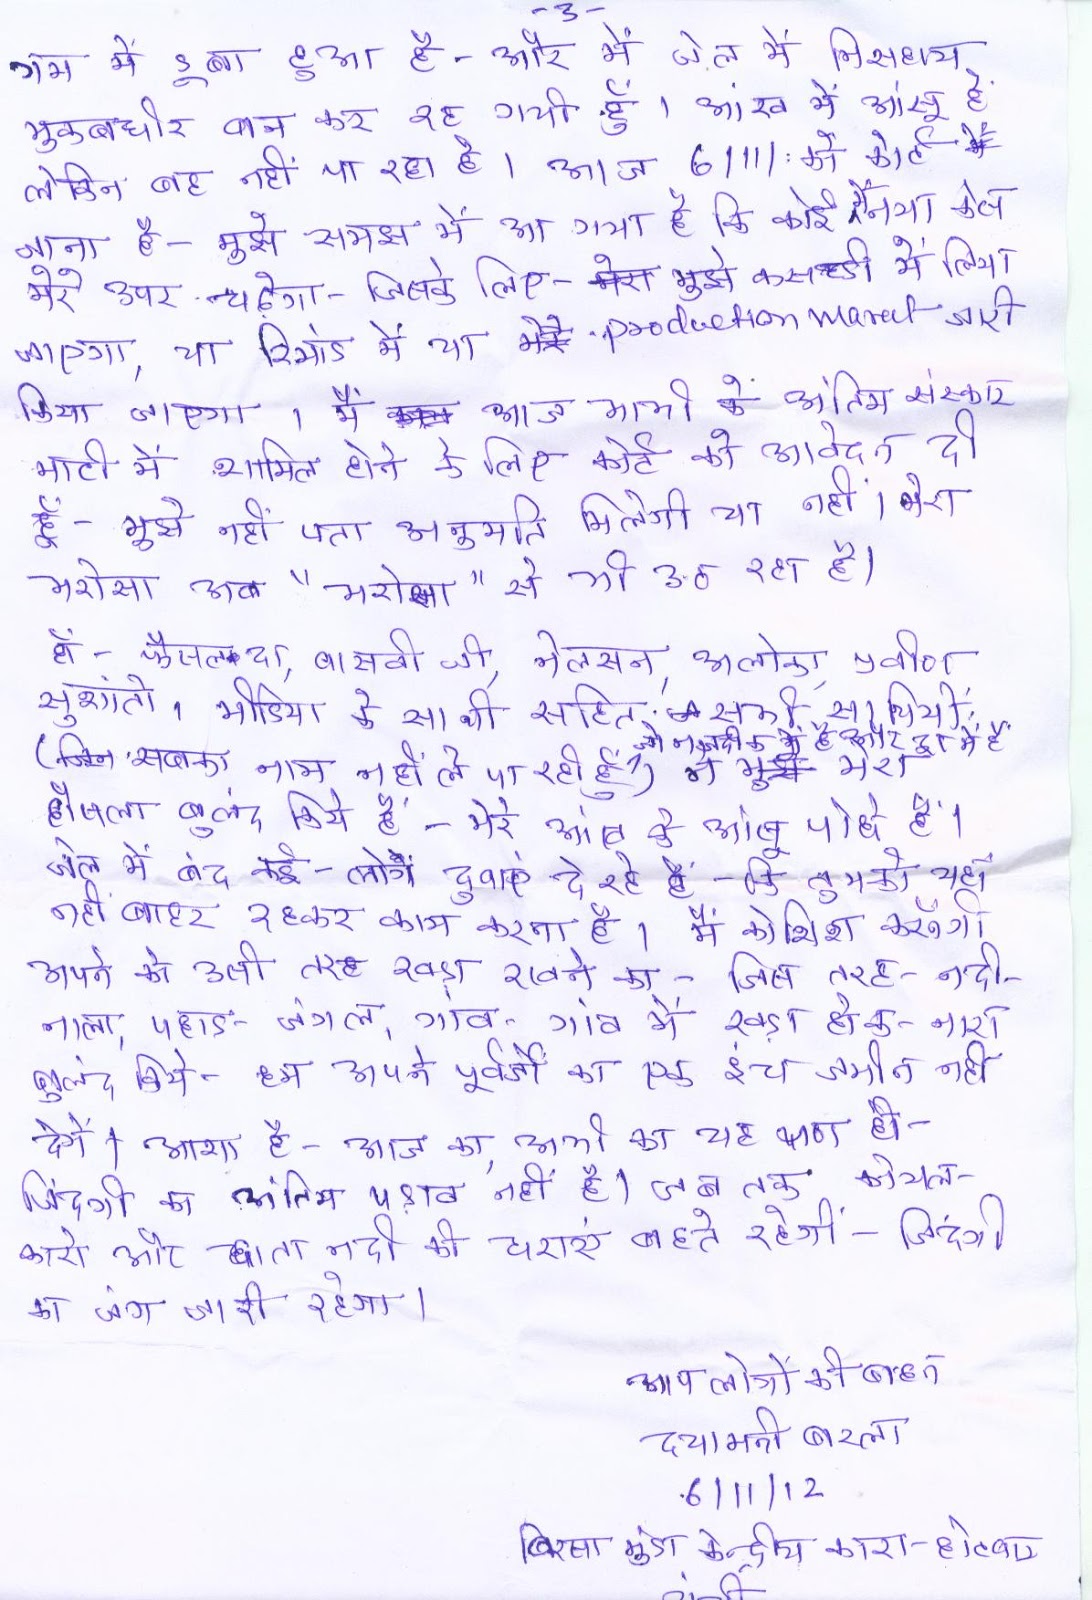 -3-
गम में डूबा हुआ है - और में जेल में निसहाय
मुकबधीर बन कर रह गयी हूँ। आंख में आंसू हैं
लेकिन बह नहीं पा रहा है। आज 6/11/: को कोर्ट में
जाना है - मुझे समझ में आ गया है कि कोई नया केस
मेरे उपर चढ़ेगा - जिसके लिए - मेरा मुझे कसटडी में लिया
जाएगा, या रिमांड में या मेरे production मarect जारी
किया जाएगा। मैं आज भाभी के अंतिम संस्कार
माटी में शामिल होने के लिए कोर्ट को आवेदन दी
हूँ - मुझे नहीं पता अनुमति मिलेगी या नहीं। मेरा
भरोसा अब "भरोसा" से भी उठ रहा है।
हाँ - फैसल दा, बासवी जी, नेलसन, अलोका, प्रवीण
सुशांतो। मीडिया के साथी सहित सभी साथियों
जो नजदीक में है और दूर में हैं
(जिन सबका नाम नहीं ले पा रही हूँ) ने मुझे मेरा
हौसला बुलंद किये हैं - मेरे आंख के आंसू पोछे हैं।
जेल में बंद कई - लोग दुवाएं दे रहे हैं - कि तुमको यहाँ
नहीं बाहर रहकर काम करना है। मैं कोशिश करूँगी
अपने को उसी तरह खड़ा रखने का - जिस तरह - नदी -
नाला, पहाड़ - जंगल, गांव - गांव में खड़ा होक - नारा
बुलंद किये - हम अपने पूर्वजों का एक इंच जमीन नहीं
देगें। आशा है - आज का, अभी का यह क्षण ही -
जिंदगी का अंतिम पड़ाव नहीं है। जब तक कोयल -
कारो और छाता नदी की धराएं बहते रहेगीं - जिंदगी
का जंग जारी रहेगा।
आप लोगों की बहन
दयामनी बरला
6/11/12
बिरसा मुंडा केन्द्रीय कारा - होटवार
रांची